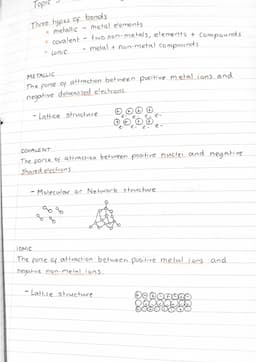 Topic
Three types of bonds
• metallic - metal elements
• covalent - two non-metals, elements + compounds
• ionic - metal + non-metal compounds
METALLIC
The force of attraction between positive metal ions and
negative delocalised electrons.
- Lattice structure
COVALENT
The force of attraction between positive nuclei and negative
shared electrons
- Molecular or Network structure
IONIC
The force of attraction between positive metal ions and
negative non-metal ions.
- Lattice structure